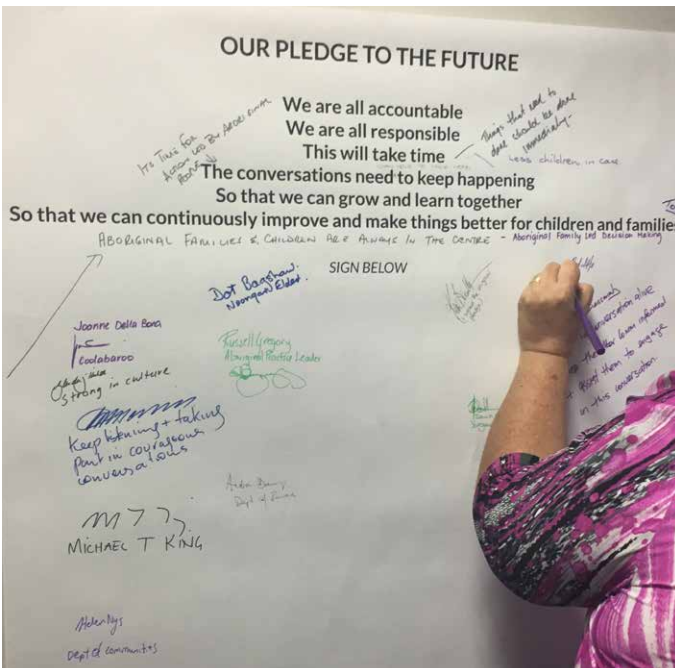 OUR PLEDGE TO THE FUTURE
We are all accountable
We are all responsible
This will take time
The conversations need to keep happening
So that we can grow and learn together
So that we can continuously improve and make things better for children and familie
Its Time For
Action Led By Aboriginal
Things that need to
done should be done
immediately-
Less children in care
ABORIGINAL FAMILIES & CHILDREN ARE ALWAYS IN THE CENTRE - Aboriginal Family Led Decision Making
SIGN BELOW
Dot Bagshaw.
Noongar Elder.
Joanne Della Bona
Coolabaroo
Strong in culture
Russell Gregory
Aboriginal Practice Leader
Keep listening + taking
part in courageous
conversations
Dept of
MICHAEL T KING
Helen Nys
Dept of communities
conversation alive
informed
them to engage
in this conversation.